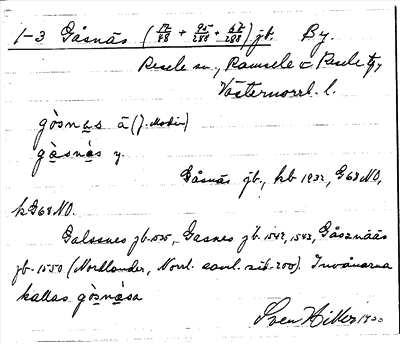 1-3 Gåsnäs (17/48 + 95/288 + 67/288) jb. By.
Resele sn., Ramsele o Resele tg,
Västernorrl. l.
gòsnes ä (J. Modin)
gàsnäs y.
Gåsnäs jb., kb 1932, G68NO,
kG68NO.
Galssnes jb. 1535, Gasnes jb. 1542, 1543, Gåsznääs
jb. 1550 (Nordlander, Norrl. saml. sid. 200). Invånarna
kallas gòsnäsa
Sven Hiller